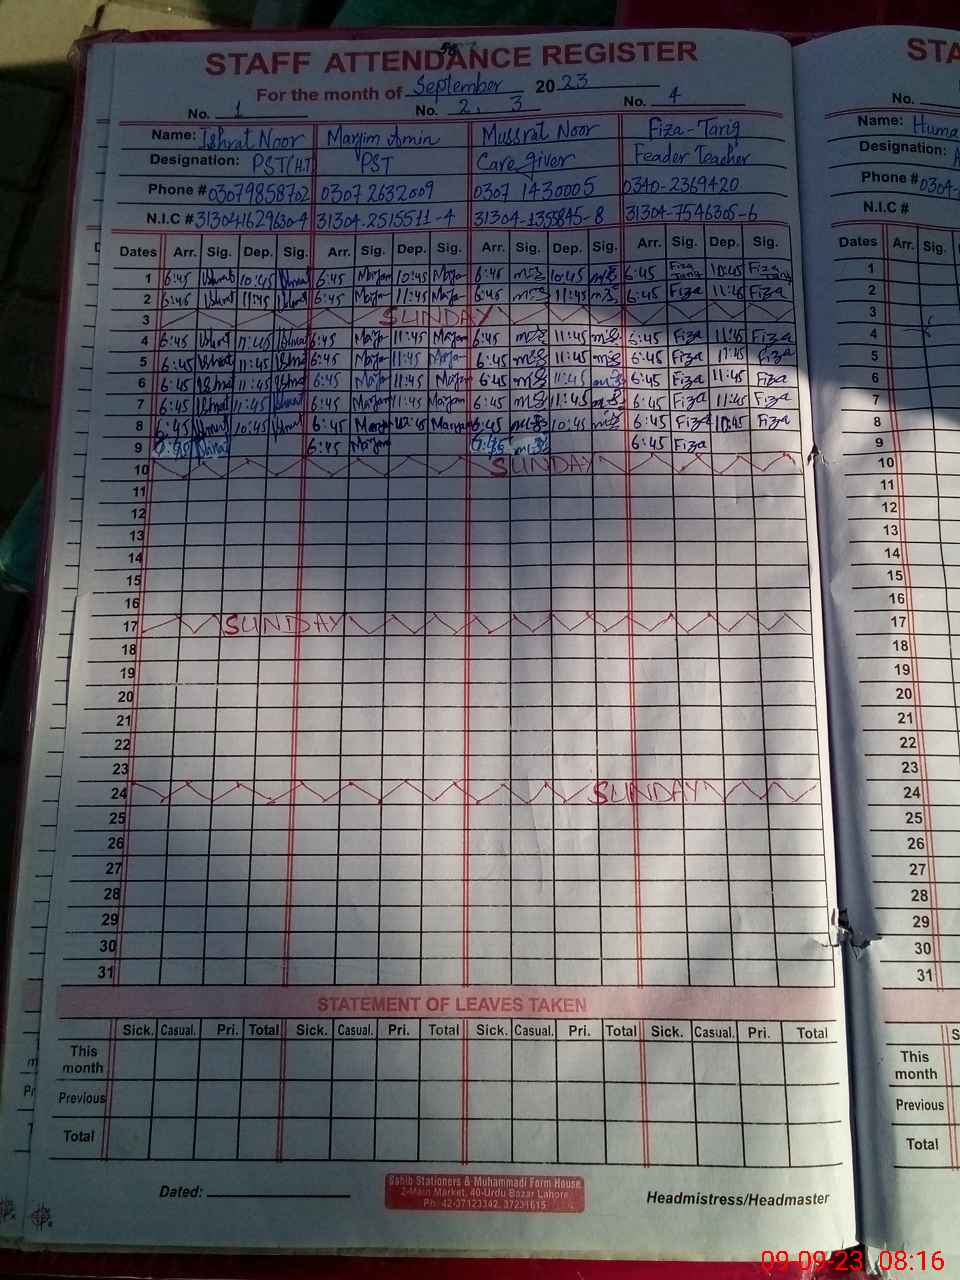 STAFF ATTENDANCE REGISTER STA
For the month of September 2023
No. 1 No. 2, 3 No. 4 No.
Name: Ishrat Noor Maryim Amin Mussrat Noor Fiza-Tariq Name: Huma
Designation: PST(H.T) PST Care giver Feader Teacher Designation:
Phone # 03079858702 0307 2632009 0307 1430005 0340-2369420 Phone # 0304-
N.I.C # 31304-2515511-4 31304-1355845-8 31304-7546305-6 N.I.C #
Dates Arr. Sig. Dep. Sig. Arr. Sig. Dep. Sig. Arr. Sig. Dep. Sig. Arr. Sig. Dep. Sig. Dates Arr. Sig.
1 6:45 Ishrat 10:45 Ishrat 6:45 Maryam 10:45 Marya 6:45 10:45 6:45 Fiza Tariq 10:45 Fiza Tariq 1
2 6:45 Ishrat 11:45 Ishrat 6:45 Marya 11:45 Marya 6:45 11:45 6:45 Fiza 11:45 Fiza 2
3 SUNDAY 3
4 6:45 Ishrat 11:45 Ishrat 6:45 Marya 11:45 Marya 6:45 11:45 6:45 Fiza 11:45 Fiza 4
5 6:45 Ishrat 11:45 Ishrat 6:45 Marya 11:45 Marya 6:45 11:45 6:45 Fiza 11:45 Fiza 5
6 6:45 Ishrat 11:45 Ishrat 6:45 Marya 11:45 Marya 6:45 11:45 6:45 Fiza 11:45 Fiza 6
7 6:45 Ishrat 11:45 Ishrat 6:45 Maryam 11:45 Maryam 6:45 11:45 6:45 Fiza 11:45 Fiza 7
8 6:45 Ishrat 10:45 Ishrat 6:45 Maryam 10:45 Maryam 6:45 10:45 6:45 Fiza 10:45 Fiza 8
9 6:45 Ishrat 6:45 Maryam 6:45 6:45 Fiza 9
10 SUNDAY 10
11 11
12 12
13 13
14 14
15 15
16 16
17 SUNDAY 17
18 18
19 19
20 20
21 21
22 22
23 23
24 SUNDAY 24
25 25
26 26
27 27
28 28
29 29
30 30
31 31
STATEMENT OF LEAVES TAKEN
Sick. Casual. Pri. Total Sick. Casual. Pri. Total Sick. Casual. Pri. Total Sick. Casual. Pri. Total
This month This month
Previous Previous
Total Total
Dated: Headmistress/Headmaster
Sahib Stationers & Muhammadi Form House
2-Main Market, 40-Urdu Bazar Lahore
Ph: 42-37123342, 37231615
09-09-23 08:16